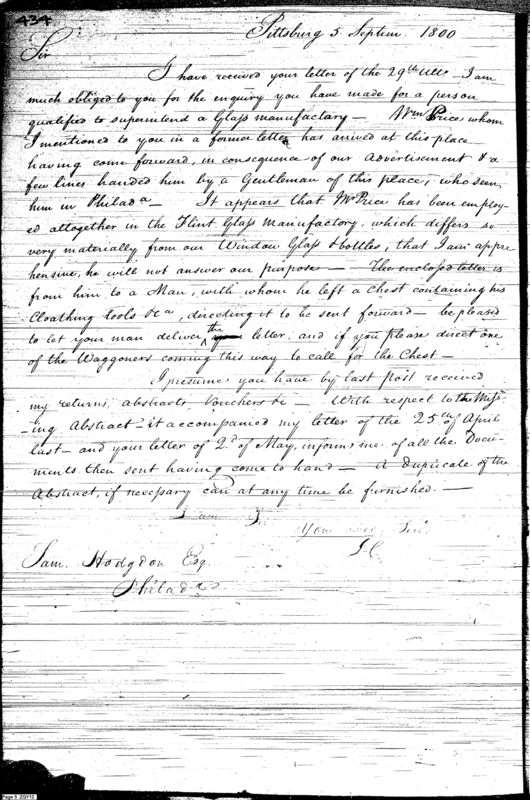 434
Pittsburg 5 Septem. 1800
Sir
I have received your letter of the 29th Ulto. I am
much obliged to you for the enquiry you have made for a person
qualified to superintend a Glass manufactory — Wm Price whom
I mentioned to you in a former letter has arived at this place
having come forward, in consequence of our advertisement & a
few lines handed him by a Gentleman of this place, who seen
him in Philada — It appears that Mr Price has been employ-
ed altogether in the Flint Glass manufactory, which differs so
very materially from our Window Glass & bottles, that I am appre
hensive, he will not answer our purpose — The enclosed letter is
from him to a Man, with whom he left a Chest containing his
Cloathing tools &ca, directing it to be sent forward — be pleased
to let your man deliver the letter, and if you please direct one
of the Waggoners coming this way to call for the Chest —
I presume you have by last post received
my returns, abstracts Vouchers &c — With respect to the Miss-
-ing Abstract — it accompanied my letter of the 25th of April
last — and your letter of 2d of May, informs me of all the Docu-
ments then sent having come to hand — A duplicate of the
Abstract, if necessary can at any time be furnished. —
I am
Your
Sam. Hodgdon Esq
Philada
Page 5 2GV12